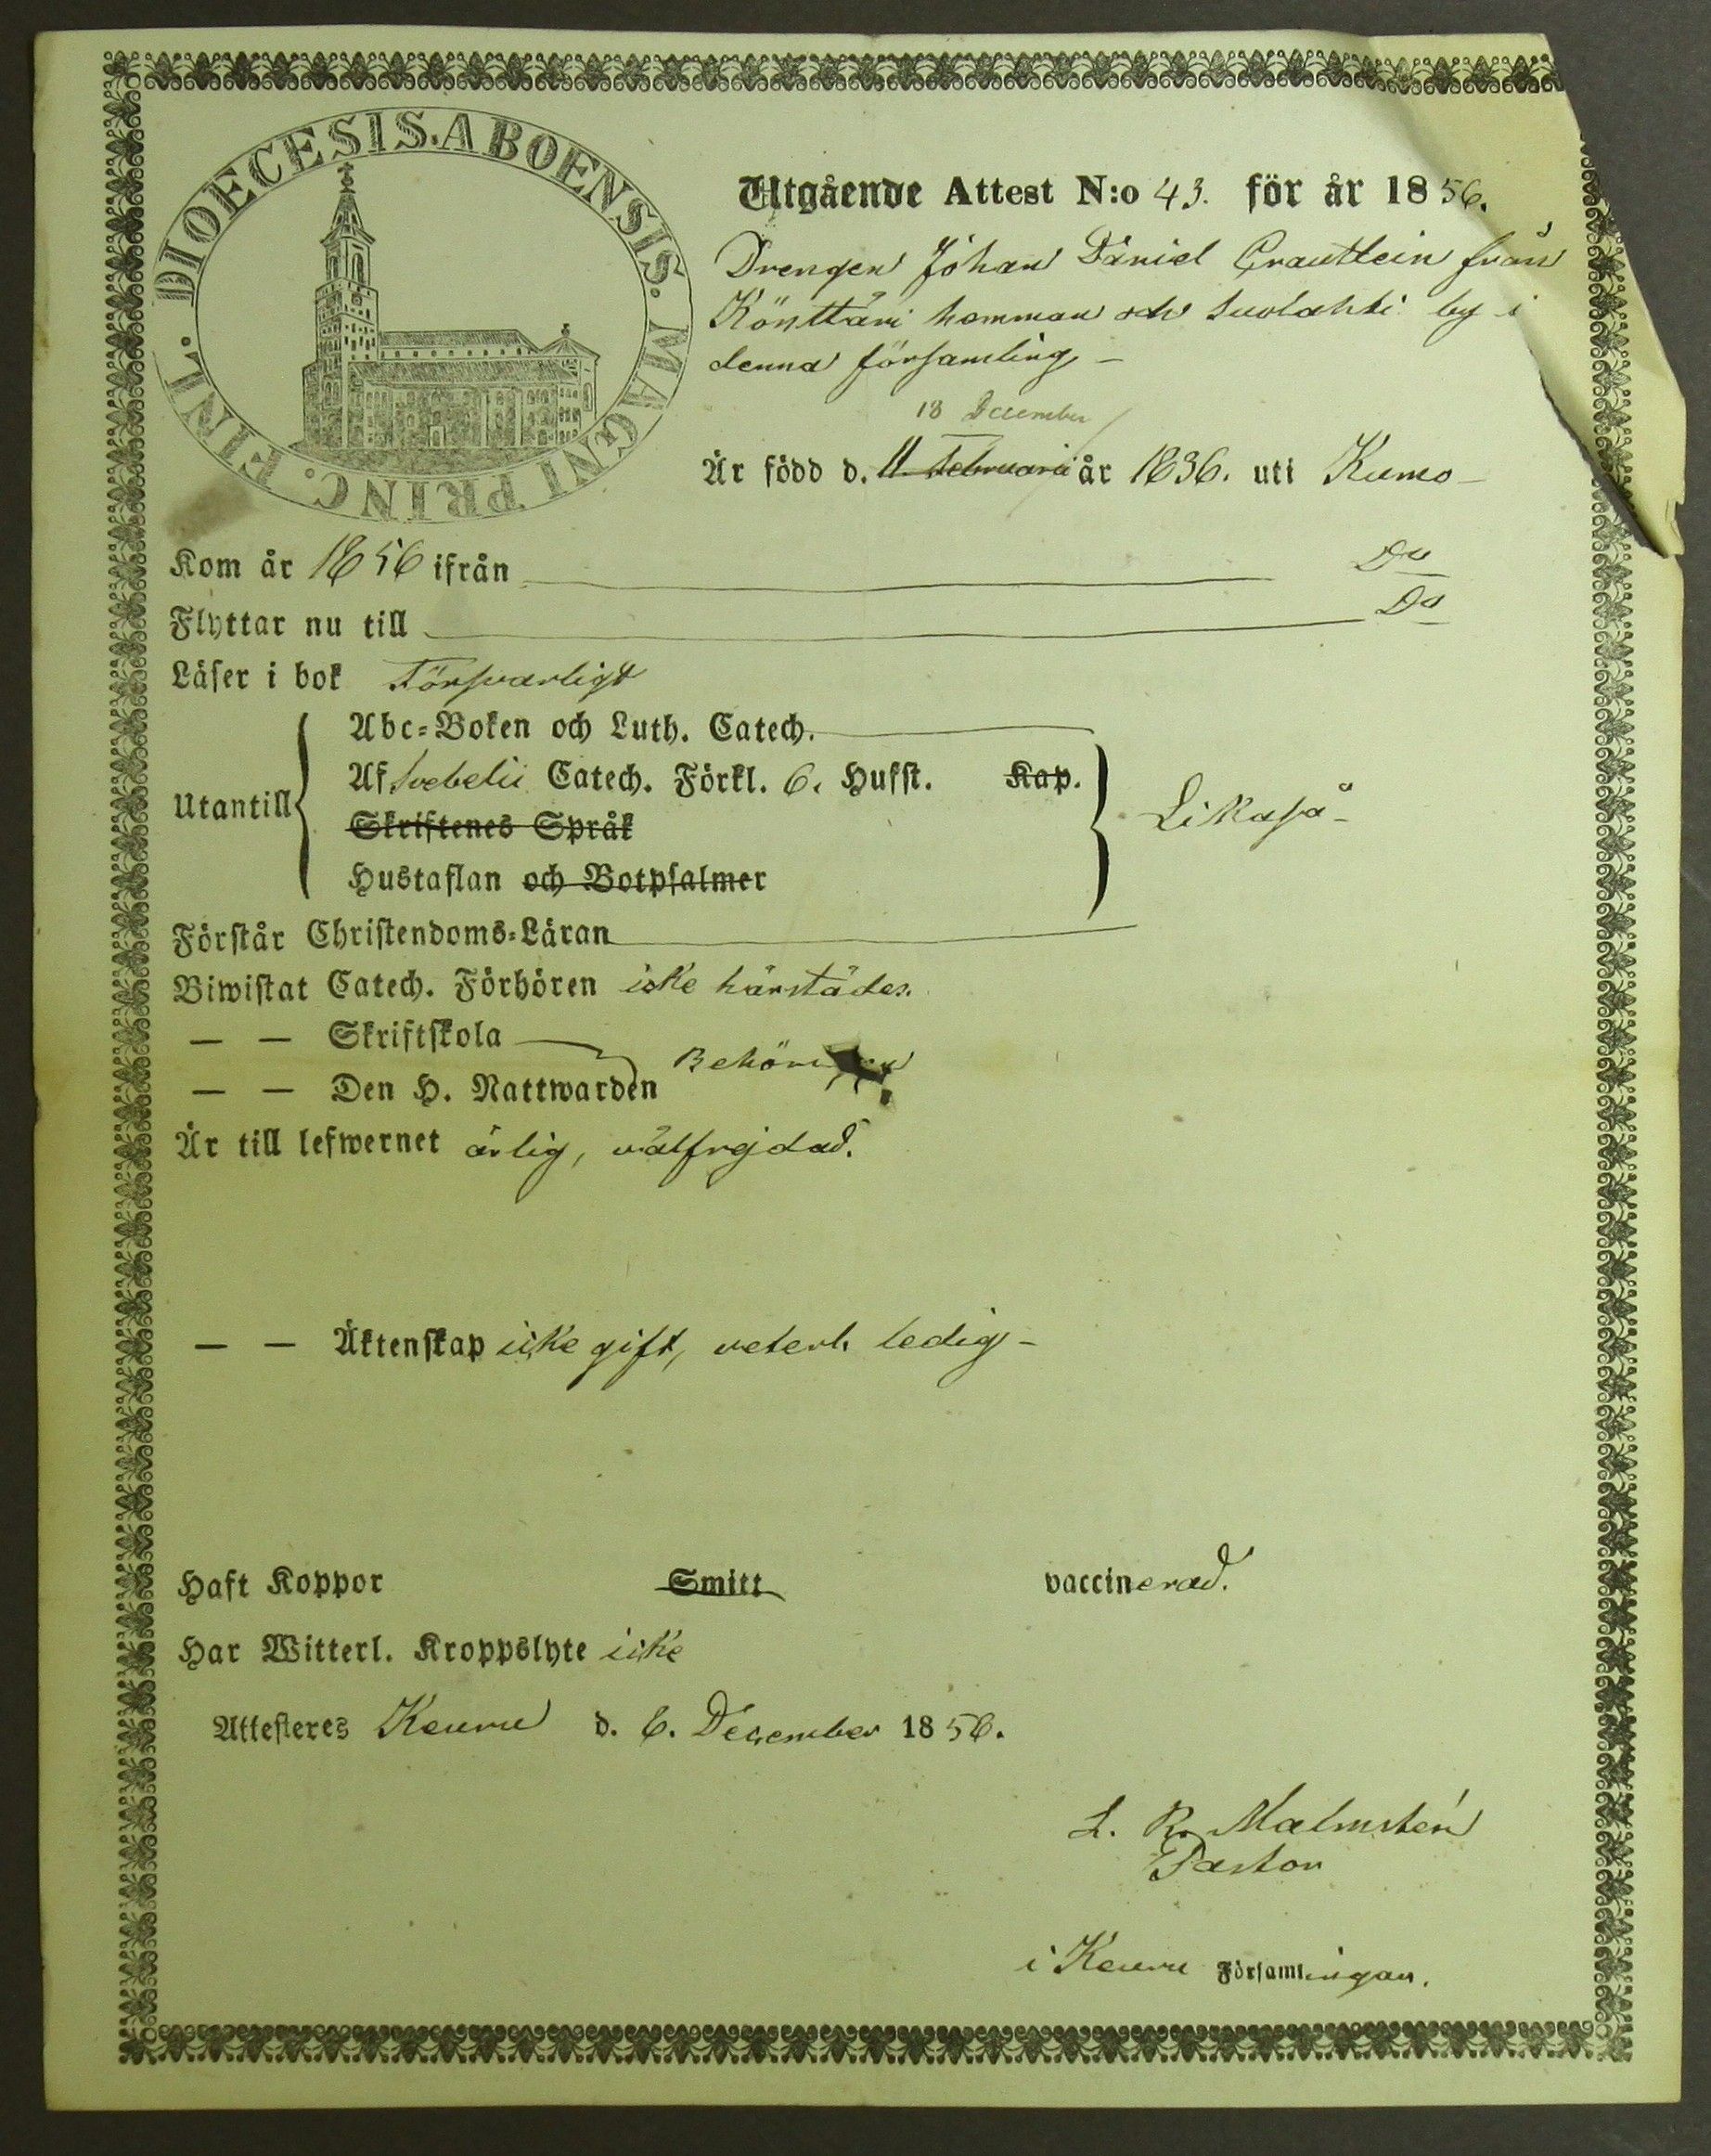 DIOECESIS. ABOENSIS. MAGNI PRINC. FINL.
Utgående Attest N:o 43. för år 1856.
Drengen Johan Daniel Grautlein från
Könttäri hemman och Suolahti by i
denna församling –
18 December
Är född d. 11 Februari år 1836. uti Kumo –
Kom år 1856 ifrån Do
Flyttar nu till Do
Läser i bok Försvarligt
Utantill
Abc-Boken och Luth. Catech.
Af Svebelii Catech. Förkl. 6. Hufst. Kap.
Skriftenes Språk
Hustaflan och Botpsalmer
Likaså –
Förstår Christendoms-Läran
Biwistat Catech. Förhören icke härstädes.
— — Skriftskola
— — Den H. Nattwarden
Är till lefwernet ärlig, välfrejdad.
— — Äktenskap icke gift, veterl. ledig –
Haft Koppor Smitt vaccinerad.
Har Witterl. Kroppslyte icke
Attesteres Keuru d. 6. December 1856.
L. R. Malmstén
Pastor
i Keuru Församlingan.